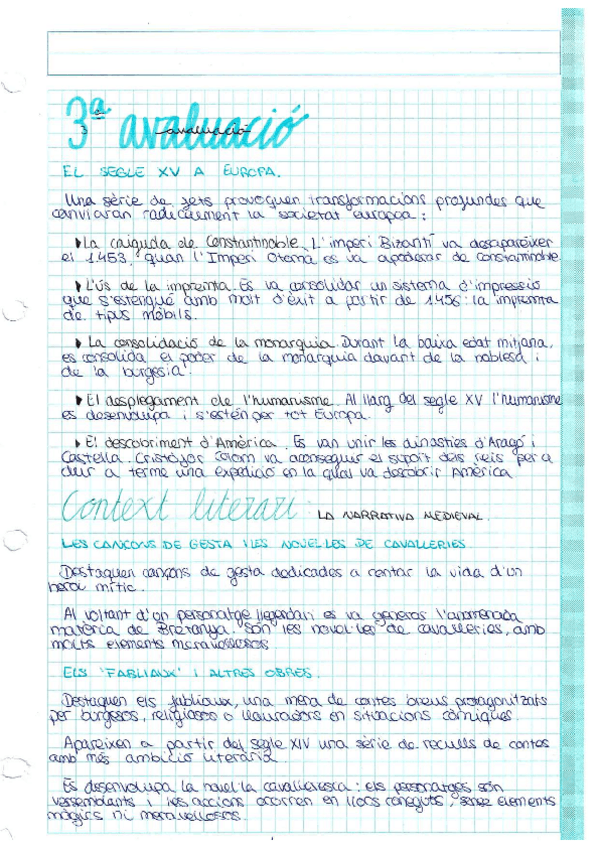 3ª avaluació
EL SEGLE XV A EUROPA.
Una sèrie de fets provoquen transformacions profundes que
canviaran radicalment la societat europea:
▶La caiguda de Constantinoble. L'imperi Bizantí va desaparèixer
el 1453, quan l'Imperi Otomà es va apoderar de Constantinoble
▶L'ús de la impremta. Es va consolidar un sistema d'impressió
que s'estengué amb molt d'èxit a partir de 1456: la impremta
de tipus mòbils.
▶ La consolidació de la monarquia. Durant la baixa edat mitjana,
es consolida el poder de la monarquia davant de la noblesa i
de la burgesia.
▶El desplegament de l'humanisme. Al llarg del segle XV l'humanisme
es desenvolupa i s'estén per tot Europa.
▶El descobriment d'Amèrica. Es van unir les dinasties d'Aragó i
Castella. Cristòfor Colom va aconseguir el suport dels reis per a
dur a terme una expedició en la qual va descobrir Amèrica.
Context literari: LA NARRATIVA MEDIEVAL.
LES CANÇONS DE GESTA I LES NOVEL·LES DE CAVALLERIES
Destaquen cançons de gesta dedicades a contar la vida d'un
heroi mític.
Al voltant d'un personatge llegendari es va generar l'anomenada
matèria de Bretanya. Són les novel·les de cavalleries, amb
molts elements meravellosos
ELS 'FABLIAUX' I ALTRES OBRES.
Destaquen els fabliaux, una mena de contes breus protagonitzats
per burgesos, religiosos o llauradors en situacions còmiques.
Apareixen a partir del segle XIV una sèrie de reculls de contes
amb més ambició literària.
Es desenvolupa la novel·la cavalleresca: els personatges són
versemblants i les accions ocorren en llocs coneguts, sense elements
màgics ni meravellosos.